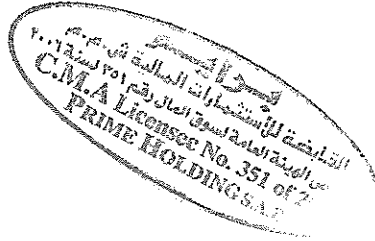 برايم
القابضة للإستثمارات المالية ش.م.م
من الهيئة العامة لسوق المال رقم ٣٥١ لسنة ٢٠٠٦
C.M.A Licensee No. 351 of 2
PRIME HOLDING S.A.E